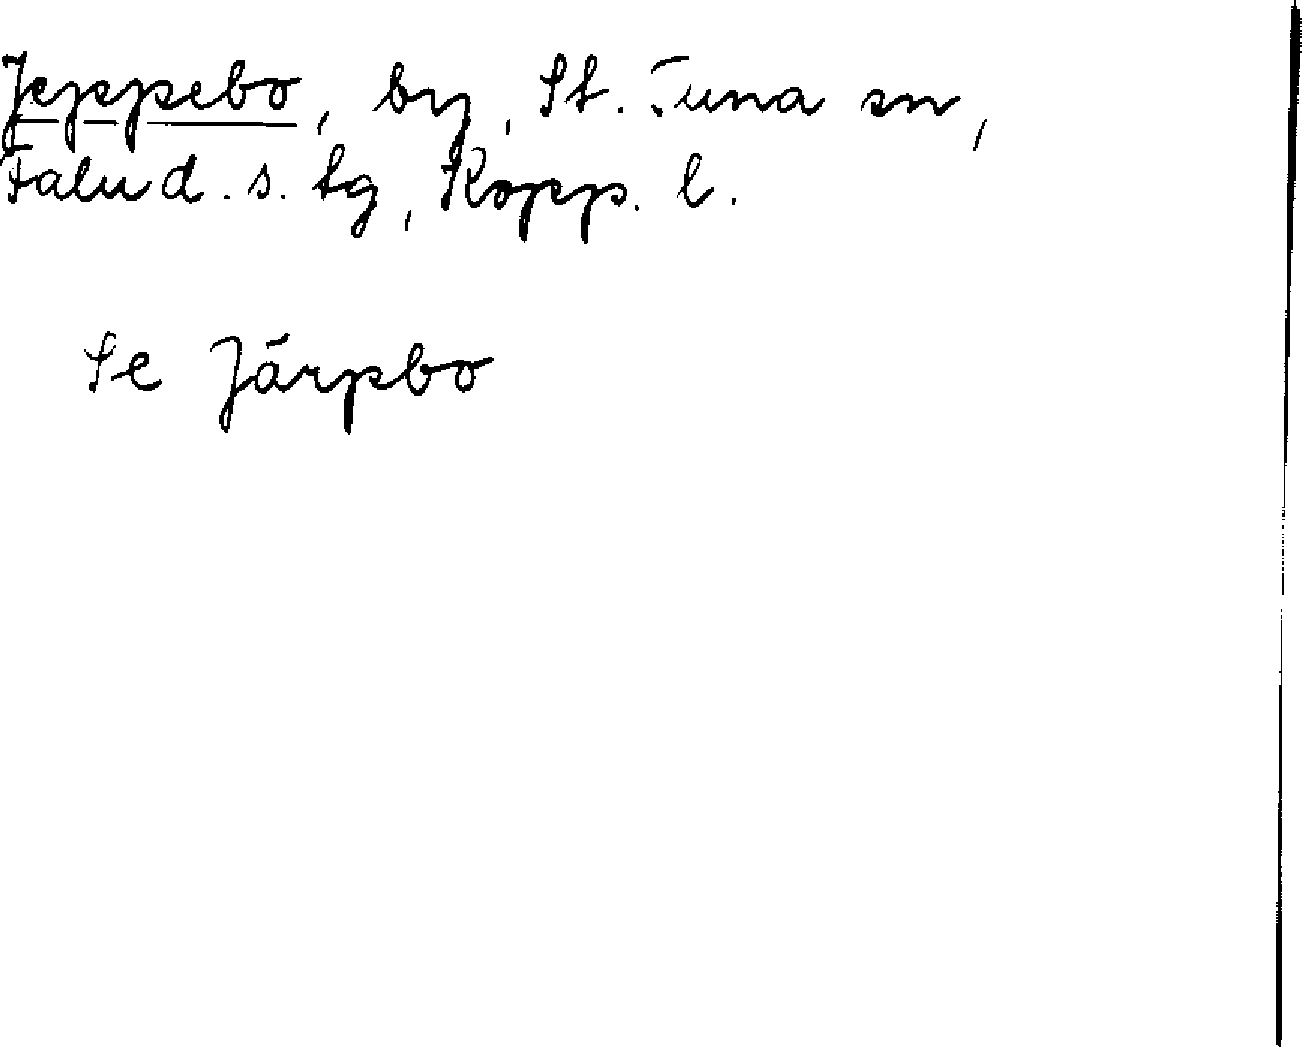 Jeppebo, by, St. Tuna sn,
Falu d. s. tg, Kopp. l.
Se Järpbo